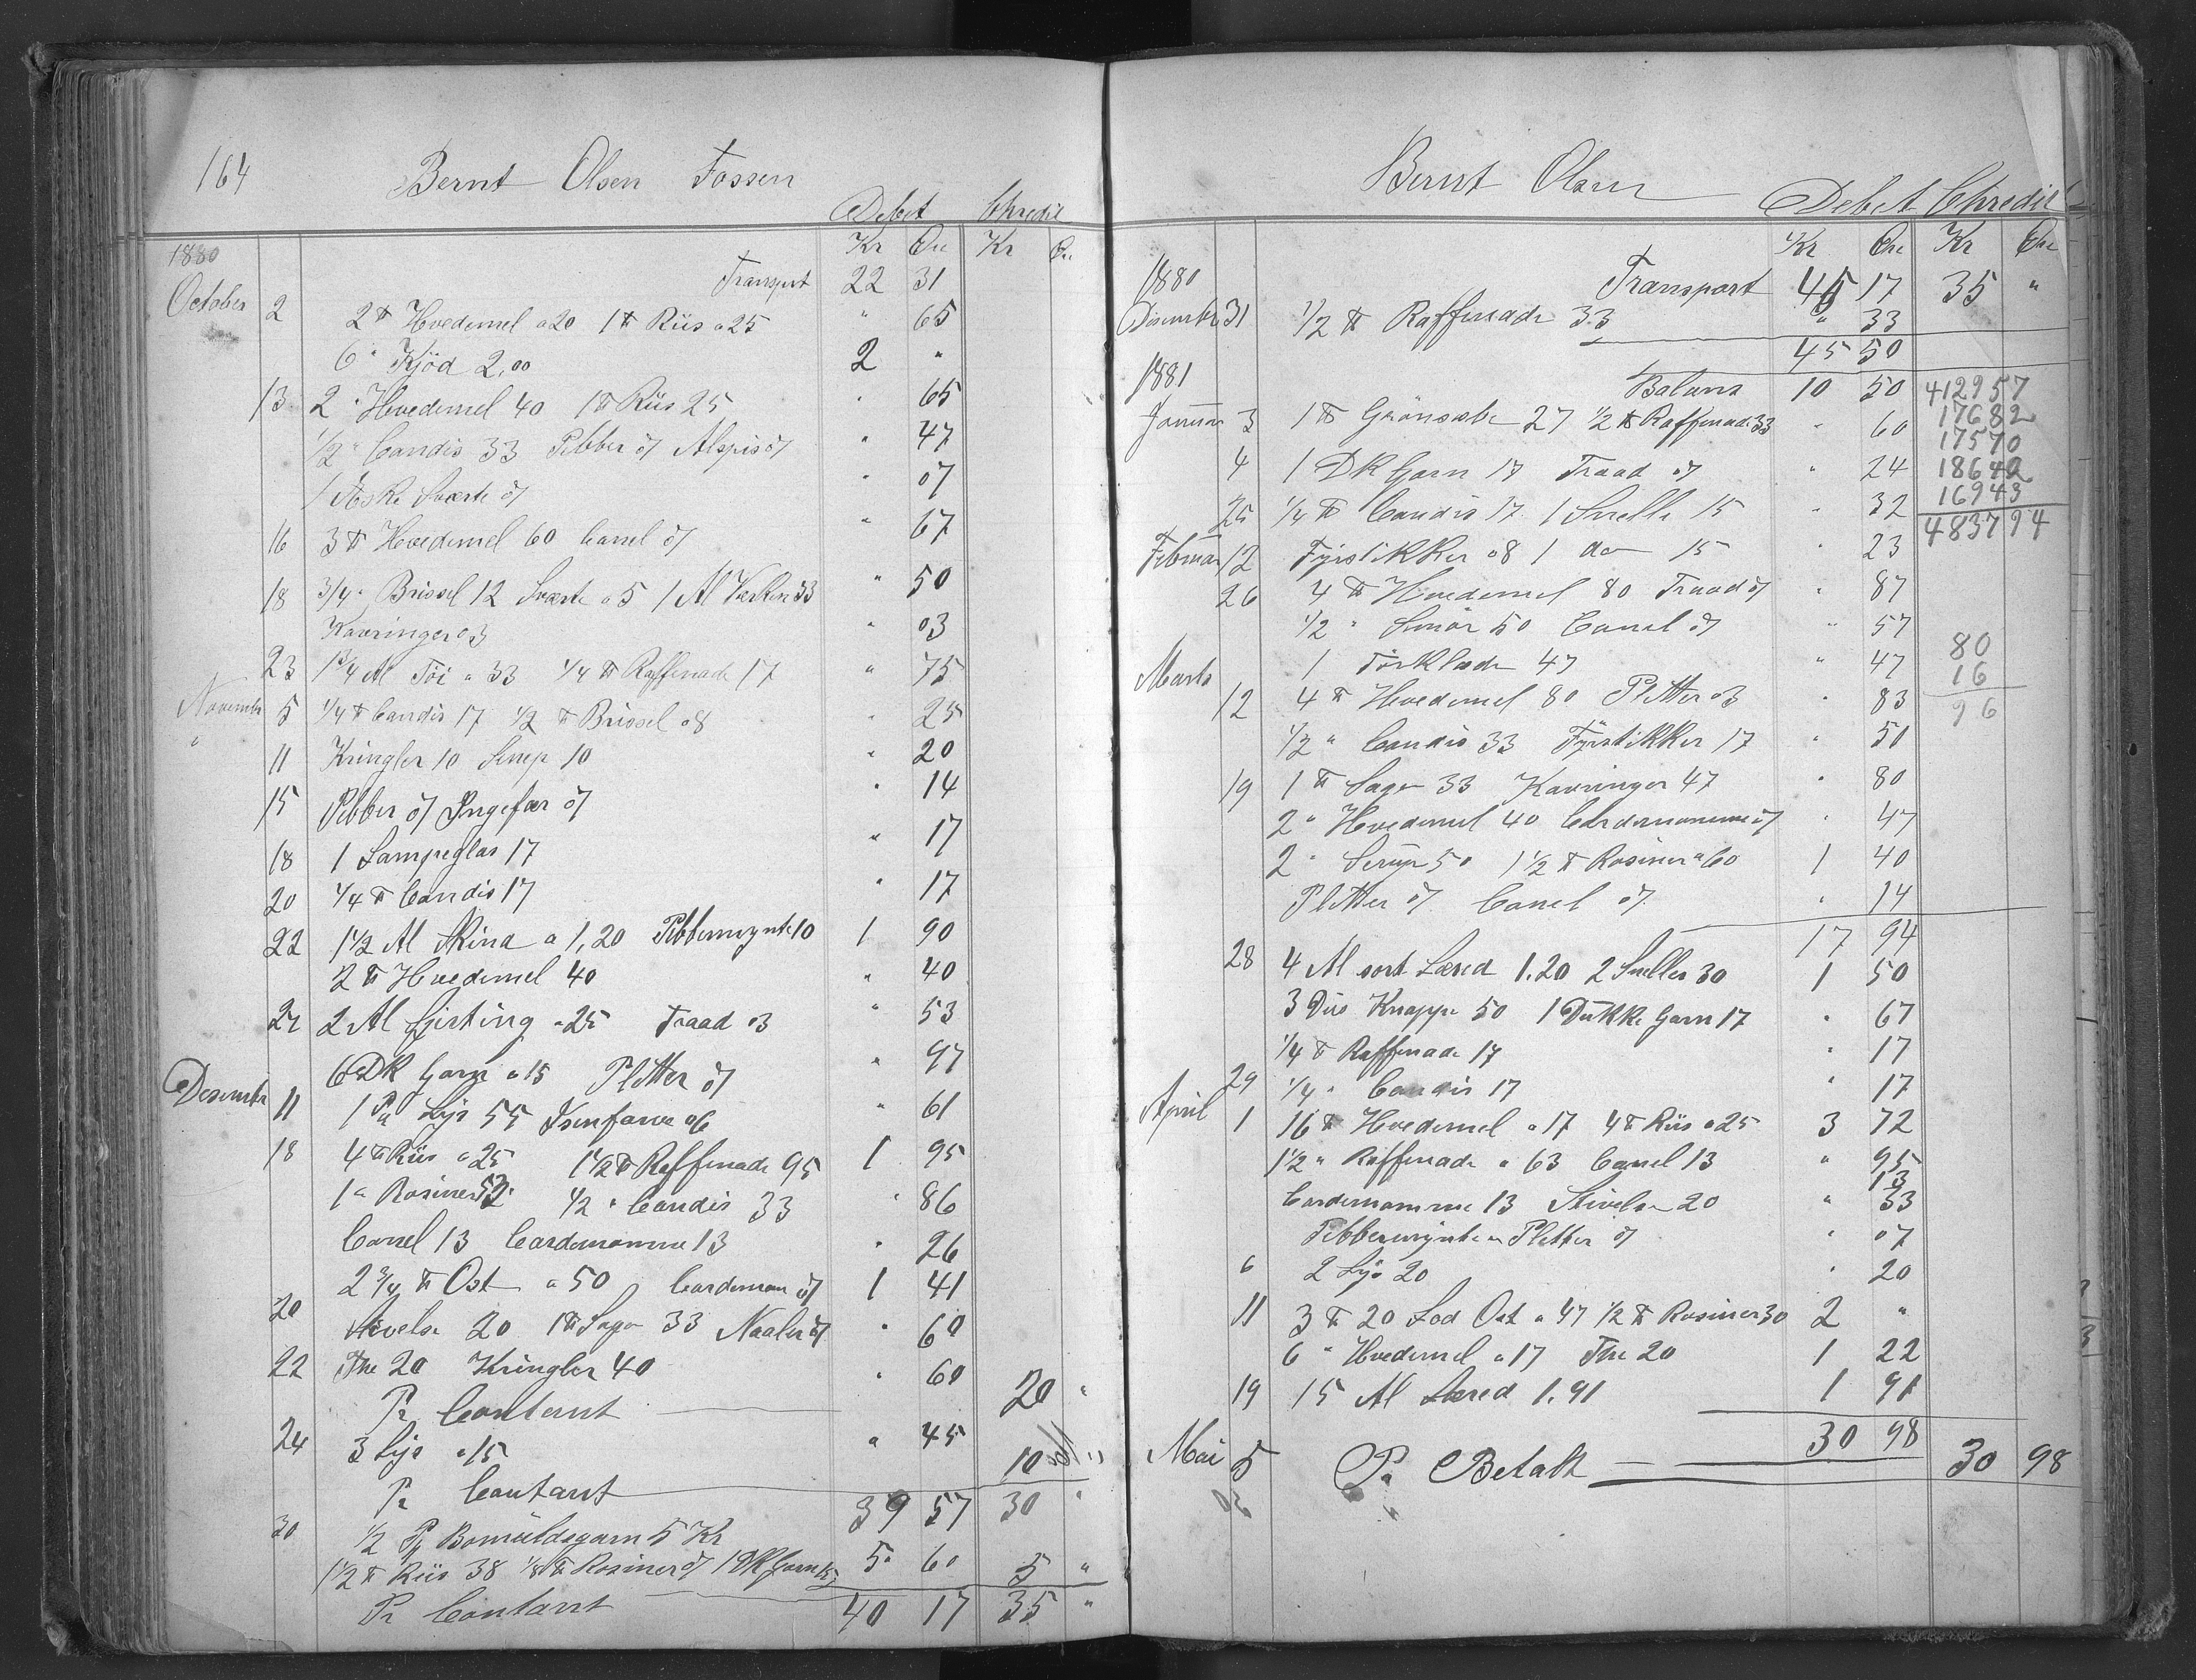 164 Bernt Olsen Fossen
Debet Chredit
1880 Kr Öre Kr Öre
Transport 22 31
October 2 2 ℔ Hvedemel a 20 1 ℔ Riis a 25 " 65
6 " Kjöd 2,00 2 "
13 2 " Hvedemel 40 1 ℔ Riis 25 " 65
1/2 " Candis 33 Pebber 07 Alspis 07 " 47
1 Æske Sværte 07 " 07
16 3 ℔ Hvedemel 60 Canel 07 " 67
18 3/4 " Brissel 12 Sværte a 5 1 Al Værken 33 " 50
Kavringer 03 " 03
23 1 3/4 Al Töi a 33 1/4 ℔ Raffinade 17 " 75
November 5 1/4 ℔ Candis 17 1/2 ℔ Brissel 08 " 25
" 11 Kringler 10 Sirup 10 " 20
15 Pebber 07 Ingefær 07 " 14
18 1 Lampeglas 17 " 17
20 1/4 ℔ Candis 17 " 17
22 1 1/2 Al Skind a 1,20 Pebbermynte 10 1 90
2 ℔ Hvedemel 40 " 40
27 2 Al Sjirting a 25 Traad 03 " 53
6 DK Garn a 15 Pletter 07 " 97
Desember 11 1 Pk Lys 55 Isenfarve 06 " 61
18 4 ℔ Riis a 25 1 1/2 ℔ Raffinade 95 1 95
1 " Rosiner 53 1/2 " Candis 33 " 86
Canel 13 Cardemomme 13 " 26
2 3/4 ℔ Ost a 50 Cardemom 07 1 41
20 Stivelse 20 1 ℔ Sago 33 Naaler 07 " 60
22 The 20 Kringler 40 " 60
Pr Contant 20 "
24 3 Lys a 15 " 45
Pr Contant 10 "
39 57 30 "
30 1/2 Pk Bomuldsgarn 5 Kr
1 1/2 ℔ Riis 38 1/8 ℔ Rosiner 07 1 DK Garn 15 5 60 5 "
Pr Contant 40 17 35 "
Bernt Olsen
Debet Chredit
Kr Öre Kr Öre
1880 Transport 45 17 35 "
Disember 31 1/2 ℔ Raffinade 33 " 33
45 50
1881 Balans 10 50 412957
Januar 3 1 ℔ Grönsæbe 27 1/2 ℔ Raffinade 33 " 60 17682
17570
4 1 DK Garn 17 Traad 07 " 24 18642
25 1/4 ℔ Candis 17 1 Snelle 15 " 32 16943
483794
Februar 12 Fyrstikker 08 1 do 15 " 23
26 4 ℔ Hvedemel 80 Traad 07 " 87
1/2 " Smör 50 Canel 07 " 57
Marts 1 Törklæde 47 " 47 80
16
12 4 ℔ Hvedemel 80 Pletter 03 " 83 96
1/2 " Candis 33 Fyrstikker 17 " 51
19 1 ℔ Sago 33 Kavringer 47 " 80
2 " Hvedemel 40 Cardemomme 07 " 47
2 " Sirup 50 1 1/2 ℔ Rosiner a 60 1 40
Pletter 07 Canel 07 " 14
17 94
28 4 Al sort Læred 1.20 2 Sneller 30 1 50
3 Dus Knappe 50 1 Dukke Garn 17 " 67
1/4 ℔ Raffinade 17 " 17
29 1/4 " Candis 17 " 17
April 1 16 ℔ Hvedemel a 17 4 ℔ Riis a 25 3 72
1 1/2 " Raffinade a 63 Canel 13 " 95
13
Cardemomme 13 Stivelse 20 " 33
Pebbermynte Pletter 07 " 07
6 2 Lys 20 " 20
11 3 ℔ 20 Lod Ost a 47 1/2 ℔ Rosiner 30 2 "
6 " Hvedemel a 17 The 20 1 22
19 15 Al Læred 1.91 1 91
30 98
Mai 5 Pr Betalt 30 98